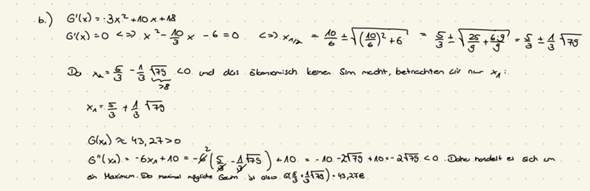 b.) G'(x) = -3x² + 10x + 18
G'(x) = 0 <=> x² - 10/3 x - 6 = 0 <=> x₁/₂ = 10/6 ± √((10/6)² + 6) = 5/3 ± √(25/9 + 6·9/9) = 5/3 ± 1/3 √79
Da x₂ = 5/3 - 1/3 √79 < 0 und das ökonomisch keinen Sinn macht, betrachten wir nur x₁:
>8
x₁ = 5/3 + 1/3 √79
G(x₁) ≈ 43,27 > 0
G''(x₁) = -6x₁ + 10 = -6² (5/3 - 1/3 √79) + 10 = -10 - 2√79 + 10 = -2√79 < 0. Daher handelt es sich um
ein Maximum. Der maximal mögliche Gewinn ist also G(5/3 + 1/3 √79) = 43,27€.